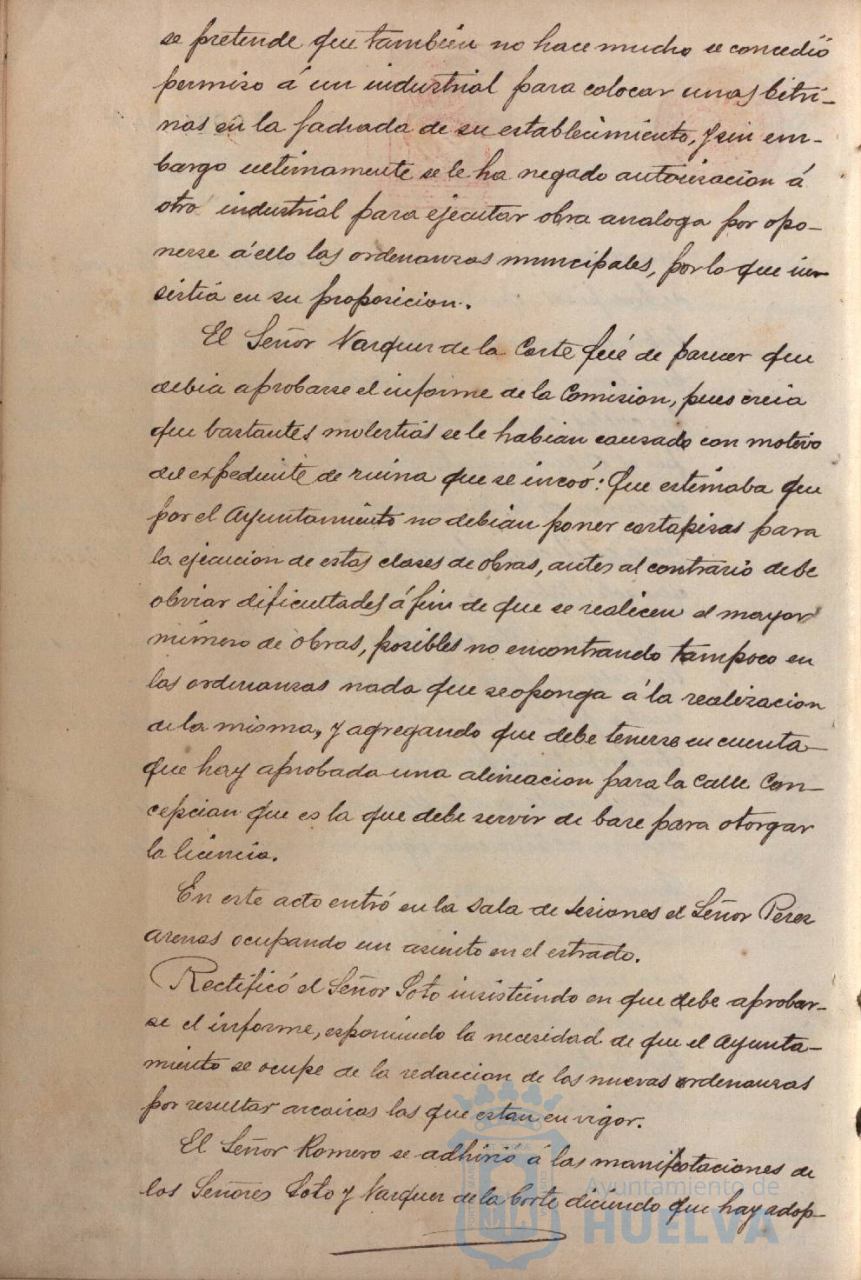 se pretende que tambien no hace mucho se concedió
permiso á un industrial para colocar unas bitri-
nas en la fachada de su establecimiento, y sin em-
bargo ultimamente se le ha negado autorizacion á
otro industrial para ejecutar obra analoga por opo-
nerse á ello las ordenanzas municipales, por lo que in-
sistia en su proposicion.
El Señor Vazquez de la Corte fué de parecer que
debia aprobarse el informe de la Comision, pues creia
que bastantes molestias se le habian causado con motivo
del expediente de ruina que se incoó: Que estimaba que
por el Ayuntamiento no debian poner cortapisas para
la ejecucion de estas clases de obras, antes al contrario debe
obviar dificultades á fin de que se realicen el mayor
número de obras, posibles no encontrando tampoco en
las ordenanzas nada que se oponga á la realizacion
de la misma, y agregando que debe tenerse en cuenta
que hay aprobada una alineacion para la calle Con-
cepcian que es la que debe servir de base para otorgar
la licencia.
En este acto entró en la Sala de Sesiones el Señor Perez
Arenas ocupando un asiento en el estrado.
Rectificó el Señor Soto insistiendo en que debe aprobar-
se el informe, esponiendo la necesidad de que el Ayunta-
miento se ocupe de la redaccion de las nuevas ordenanzas
por resultar arcaicas las que estan en vigor.
El Señor Romero se adhirió á las manifestaciones de
los Señores Soto y Vazquez de la Corte diciendo que hay adop-
Ayuntamiento de
HUELVA